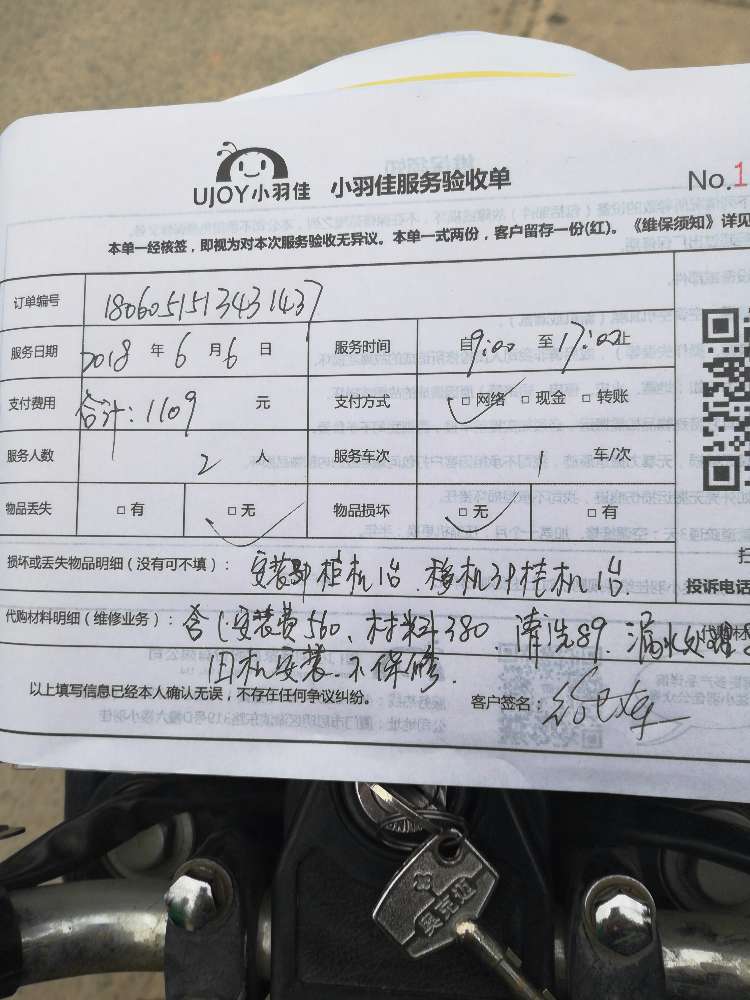 UJOY小羽佳 小羽佳服务验收单 No.1
本单一经核签，即视为对本次服务验收无异议。本单一式两份，客户留存一份(红)。《维保须知》详见
订单编号 1806051513431437
服务日期 2018 年 6 月 6 日 服务时间 自9:00 至17:00止
支付费用 合计:1109 元 支付方式 □网络 □现金 □转账
服务人数 2 人 服务车次 1 车/次
物品丢失 □有 □无 物品损坏 □无 □有
损坏或丢失物品明细（没有可不填）： 安装3P柜机1台.移机3P挂机1台.
投诉电话
代购材料明细（维修业务）： 含(安装费560、材料380、清洗89.漏水处理
旧机安装.不保修.
以上填写信息已经本人确认无误，不存在任何争议纠纷。 客户签名：
奥克迈